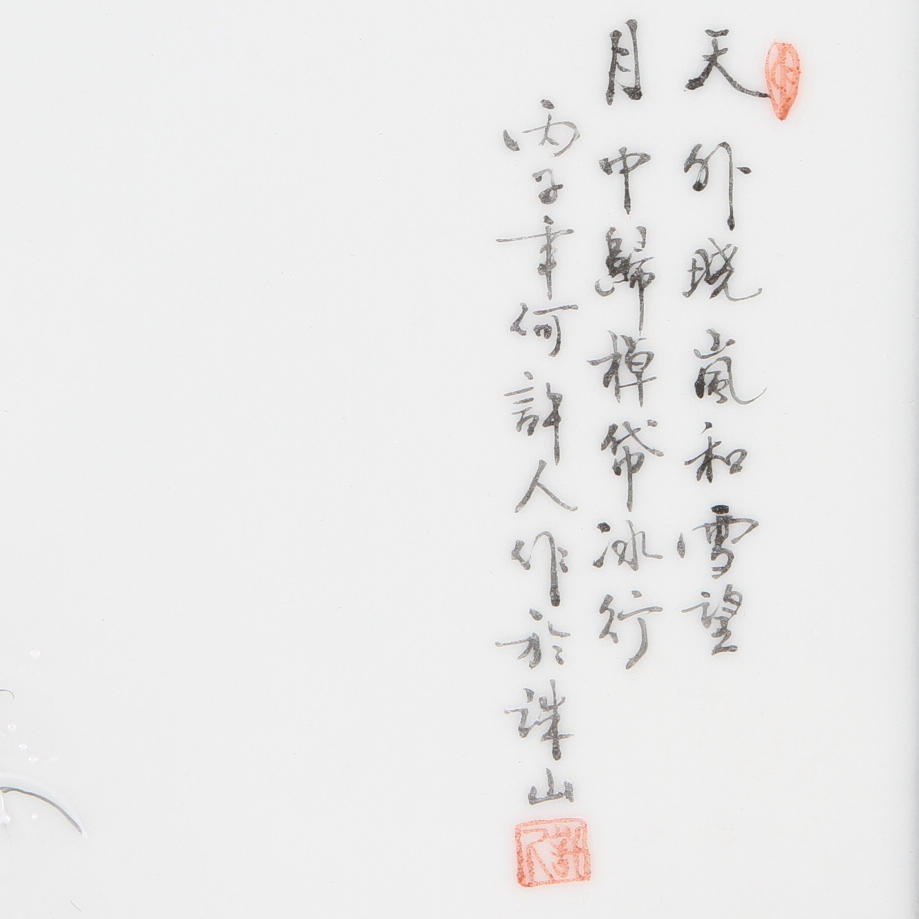 天外晓嵐和雪望
月中歸棹帶冰行
丙子年何許人作於珠山
許人